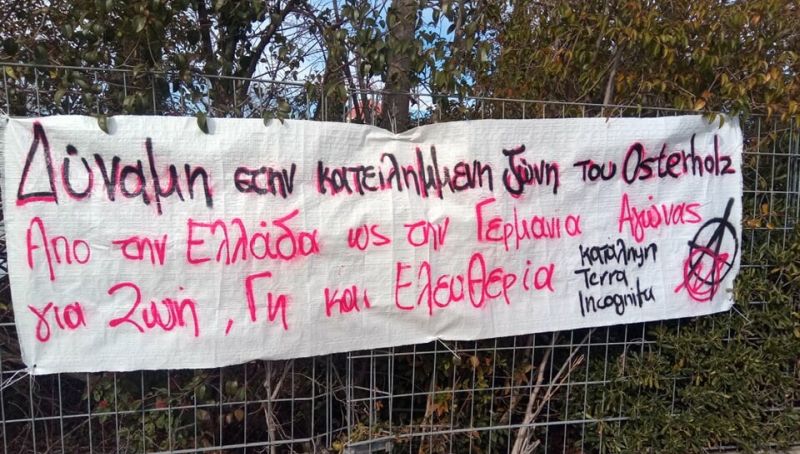 Δύναμη στην κατειλημμένη ζώνη του Osterholz
Απο την Ελλάδα ως την Γερμανια Αγώνας
για Ζωή, Γη και Ελευθερία
κατάληψη
Terra
Incognita